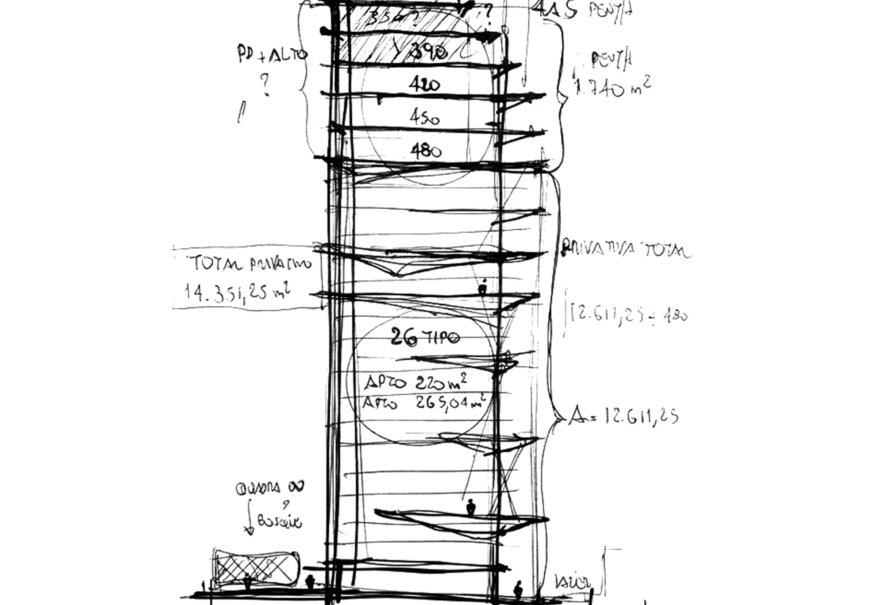 4 A 5 PENTH
350?
?
PD + ALTO
?
390
PENTH
1.740 m²
420
450
480
PRIVATIVA TOTAL
TOTAL PRIVATIVO
14.351,25 m²
12.611,25 ÷ 480
26 TIPO
APTO 220 m²
APTO 265,04 m²
A = 12.611,25
QUADRA
?